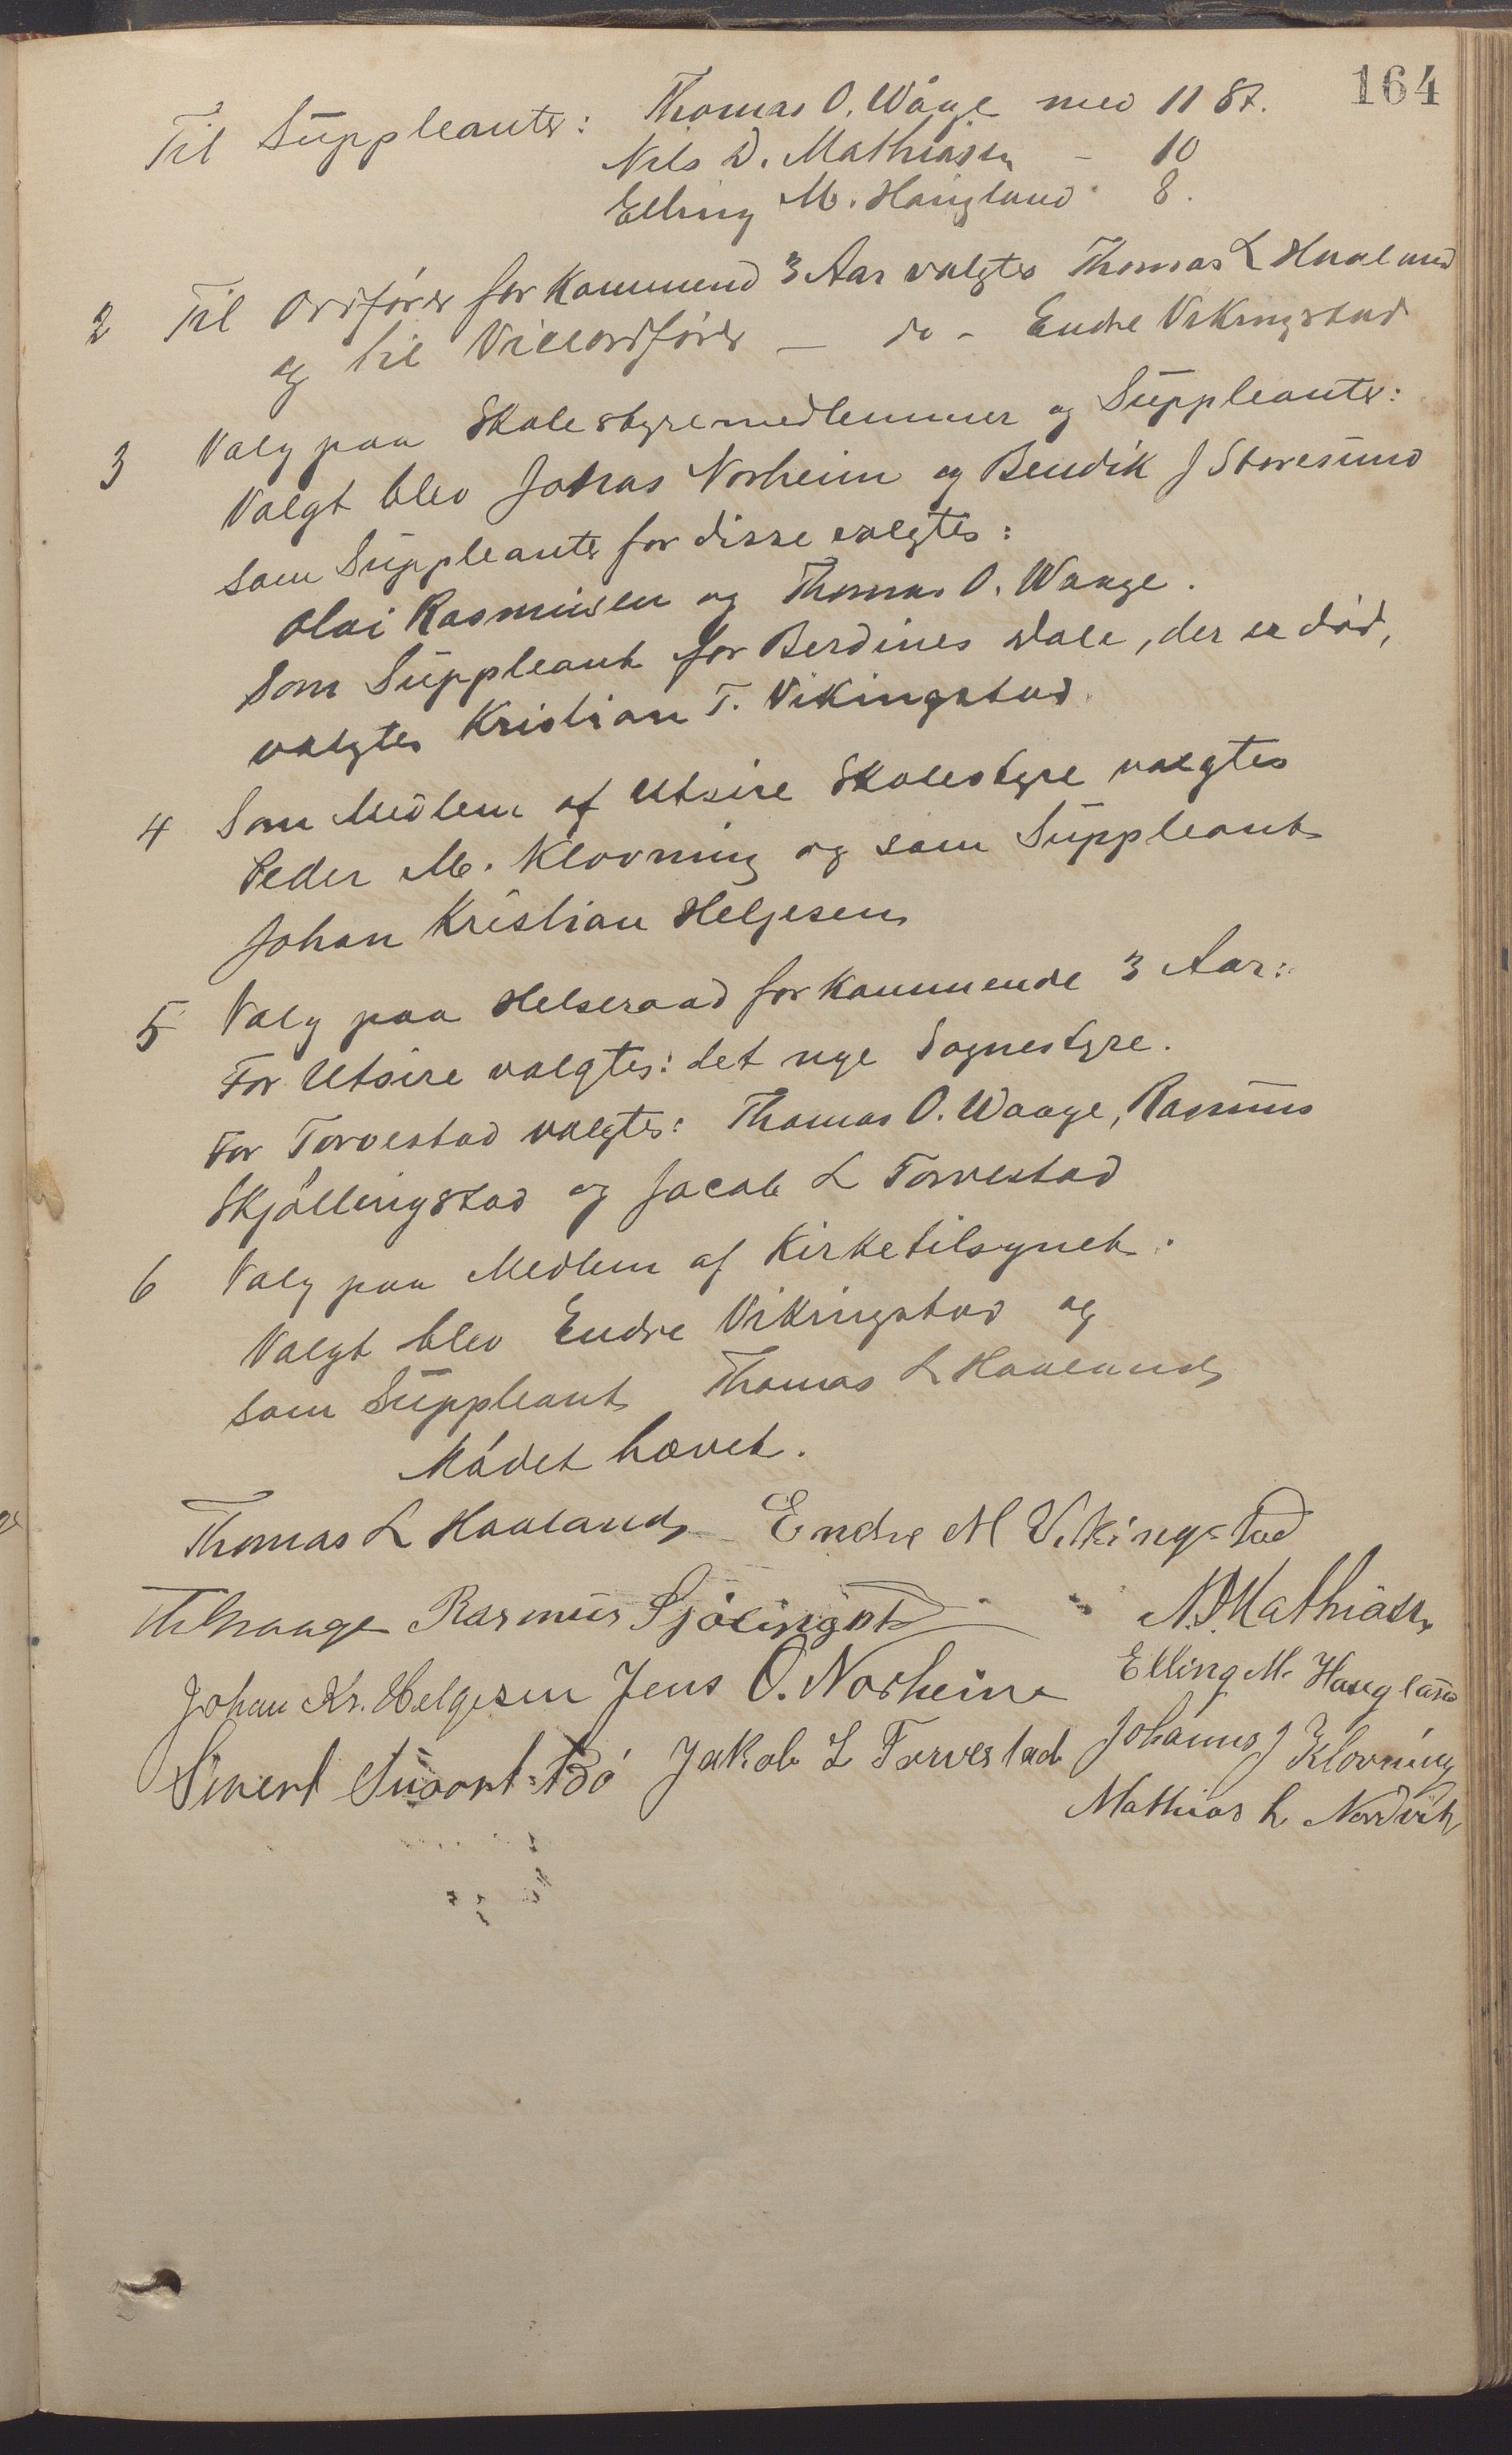 164
Til Suppleanter: Thomas O. Wåge med 11 St.
Nils D. Mathiasen - 10
Elling M. Haugland 8.
2 Til Ordfører for kommend 3 Aar valgtes Thomas L Haaland
og til Viceordfører — do - Endre Vikingstad
3 Valg paa Skolestyremedlemmer og Suppleanter:
Valgt blev Johas Norheim og Bendik J Storesund
som Suppleanter for disse valgtes:
Olai Rasmussen og Thomas O. Waage.
Som Suppleant for Berdines Dale, der er død,
valgtes Kristian T. Vikingstad.
4 Som Medlem af Utsire Skolestyre valgtes
Peder M. Klovning og som Suppleant
Johan Kristian Helgesen
5 Valg paa Helseraad for kommende 3 Aar:
For Utsire valgtes: det nye Sognestyre.
For Torvestad valgtes: Thomas O. Waage, Rasmus
Skjøllingstad og Jacob L Torvestad
6 Valg paa Medlem af Kirketilsynet.
Valgt blev Endre Vikingstad og
som Suppleant Thomas L Haaland
Mødet hævet.
Thomas L Haaland Endre M Vikingstad
Rasmus Sjølingst N. D. Mathiasen
Johan Kr. Helgesen Jens O. Norheim Elling M. Haugland
Sivert Bø Jakob L Torvestad Johannes J Klovning
Mathias L Nordvik